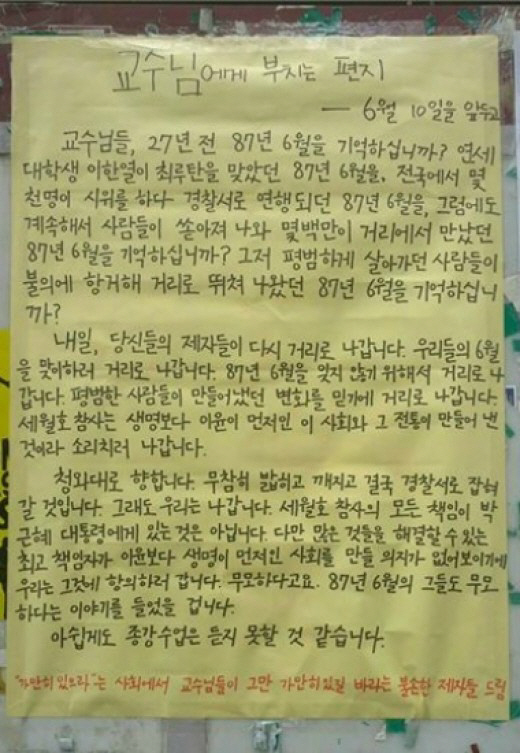 교수님에게 부치는 편지
— 6월 10일을 앞두고
교수님들, 27년 전 87년 6월을 기억하십니까? 연세
대학생 이한열이 최루탄을 맞았던 87년 6월을. 전국에서 몇
천명이 시위를 하다 경찰서로 연행되던 87년 6월을, 그럼에도
계속해서 사람들이 쏟아져 나와 몇백만이 거리에서 만났던
87년 6월을 기억하십니까? 그저 평범하게 살아가던 사람들이
불의에 항거해 거리로 뛰쳐 나왔던 87년 6월을 기억하십니
까?
내일, 당신들의 제자들이 다시 거리로 나갑니다. 우리들의 6월
을 맞이하러 거리로 나갑니다. 87년 6월을 잊지 않기 위해서 거리로 나
갑니다. 평범한 사람들이 만들어냈던 변화를 믿기에 거리로 나갑니다.
세월호 참사는 생명보다 이윤이 먼저인 이 사회와 그 전통이 만들어 낸
것이라 소리치러 나갑니다.
청와대로 향합니다. 무참히 밟히고 깨지고 결국 경찰서로 잡혀
갈 것입니다. 그래도 우리는 나갑니다. 세월호 참사의 모든 책임이 박
근혜 대통령에게 있는 것은 아닙니다. 다만 많은 것들을 해결할 수 있는
최고 책임자가 이윤보다 생명이 먼저인 사회를 만들 의지가 없어보이기에
우리는 그것에 항의하러 갑니다. 무모하다고요. 87년 6월의 그들도 무모
하다는 이야기를 들었을 겁니다.
아쉽게도 종강수업은 듣지 못할 것 같습니다.
"가만히 있으라"는 사회에서 교수님들이 그만 가만히있길 바라는 불손한 제자들 드림